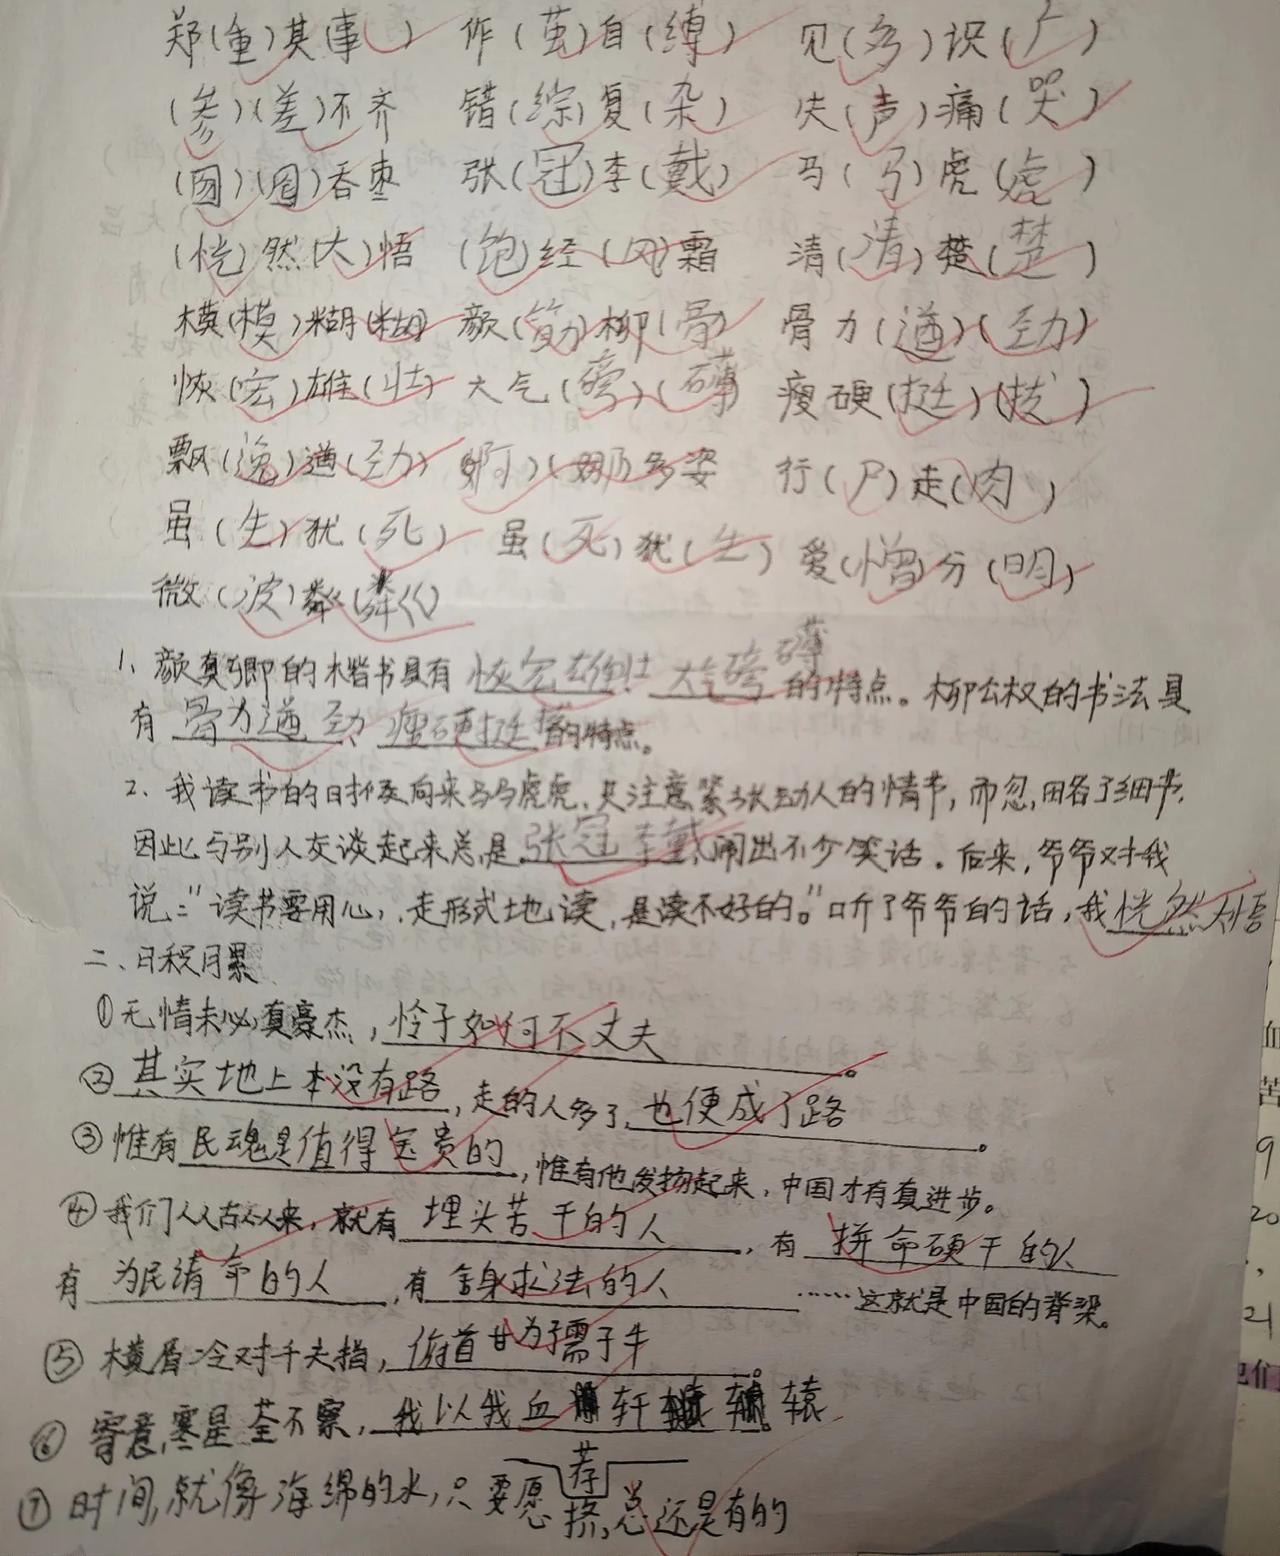 郑(重)其(事) 作(茧)自(缚) 见(多)识(广)
(参)(差)不齐 错(综)复(杂) 失(声)痛(哭)
(囫)(囵)吞枣 张(冠)李(戴) 马(马)虎(虎)
(恍)然(大)悟 (饱)经(风)霜 清(清)楚(楚)
模(模)糊(糊) 颜(筋)柳(骨) 骨力(遒)(劲)
恢(宏)雄(壮) 大气(磅)(礴) 瘦硬(挺)(拔)
飘(逸)遒(劲) (婀)(娜)多姿 行(尸)走(肉)
虽(生)犹(死) 虽(死)犹(生) 爱(憎)分(明)
微(波)粼(粼)
1、颜真卿的楷书具有恢宏雄壮 大气磅礴的特点。柳公权的书法具
有骨力遒劲、瘦硬挺拔的特点。
2、我读书的时候向来马马虎虎、只注意紧张动人的情节,而忽略了细节,
因此与别人交谈起来总是张冠李戴,闹出不少笑话。后来,爷爷对我
说:"读书要用心,走形式地读,是读不好的。"听了爷爷的话,我恍然大悟
二、日积月累
①无情未必真豪杰,怜子如何不丈夫。
②其实地上本没有路,走的人多了,也便成了路。
③惟有民魂是值得宝贵的,惟有他发扬起来,中国才有真进步。
④我们从古以来,就有埋头苦干的人,有拼命硬干的人
有为民请命的人,有舍身求法的人……这就是中国的脊梁。
⑤横眉冷对千夫指,俯首甘为孺子牛。
⑥寄意寒星荃不察,我以我血荐轩辕。
⑦时间,就像海绵的水,只要愿挤,总还是有的
血
苦
9
20
21
他们